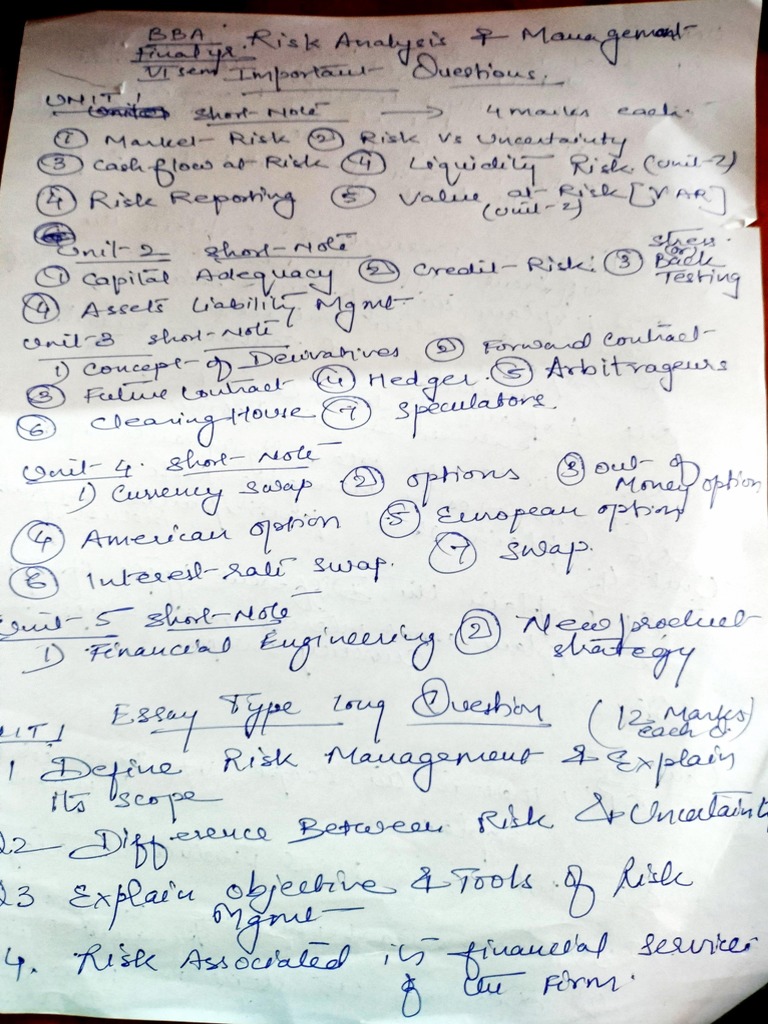 BBA Risk Analysis & Management
Final yr.
VI sem Important Questions.
UNIT 1 Short-Note → 4 marks each.
① Market Risk ② Risk Vs Uncertainty
③ Cash flow at Risk ④ Liquidity Risk (Unit-2)
④ Risk Reporting ⑤ Value at Risk [VAR]
(Unit-2)
Unit-2 Short-Note
① Capital Adequacy ② Credit-Risk. ③ Stress or Back Testing
④ Assets Liability Mgmt
Unit-3 Short-Note
1) Concept of Derivatives ② Forward Contract
③ Future Contract ④ Hedger. ⑤ Arbitrageurs
⑥ Clearing House ⑦ Speculators.
Unit-4. Short-Note
1) Currency Swap ② Options ③ Out of Money option
④ American option ⑤ European option
⑥ Interest-rate swap. ⑦ Swap.
Unit-5 Short-Note
1) Financial Engineering ② New product strategy
UNIT 1 Essay Type Long Question (12 Marks each)
1 Define Risk Management & Explain
its scope
Q2 Difference Between Risk & Uncertainty
Q3 Explain Objective & Tools of Risk
Mgmt
4. Risk Associated its financial services
of the Form.